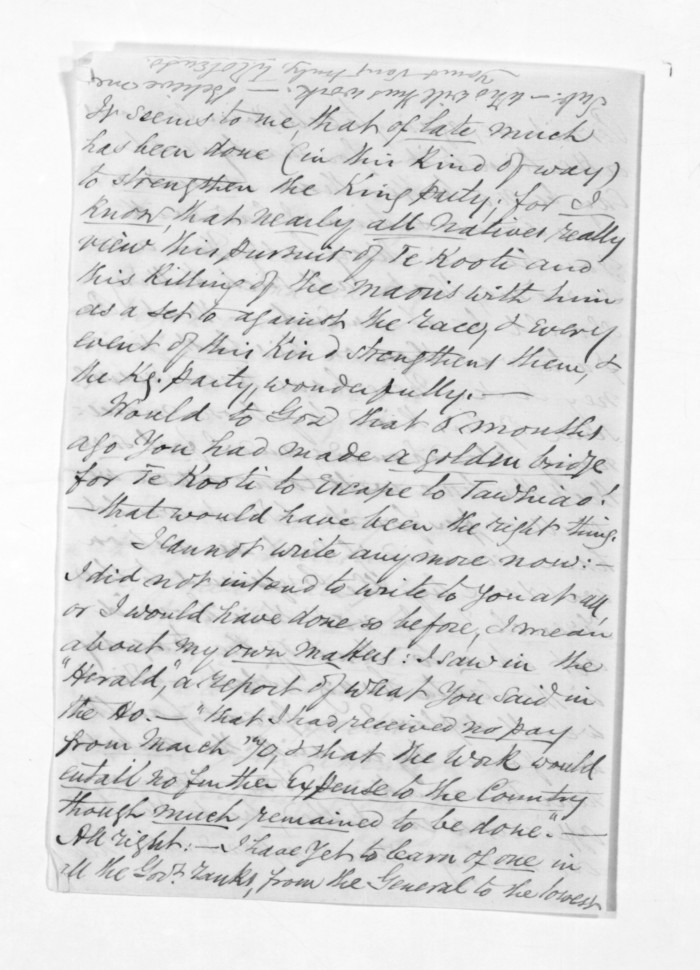 It seems to me, that of late much
has been done (in this kind of way)
to strengthen the King party; for I
know, that nearly all natives really
view this pursuit of Te Kooti and
this killing of the maoris with him
as a set to against the race, & every
event of this kind strengthens them, &
the Kg. party, wonderfully.—
Would to God that 8 months
ago you had made a golden bridge
for Te Kooti to escape to Tawhiao!
—that would have been the right thing.
I cannot write any more now:—
I did not intend to write to you at all
or I would have done so before, I mean
about my own matters: I saw in the
"Herald", a report of what you said in
the Ho.— "that I had received no pay
from March /70, & that the work would
entail no further expense to the Country
though much remained to be done."—
All right:— I have yet to learn of one in
all the Govt. ranks, from the General to the lowest
Sub:— who will thus work.— Believe me,
Yours very truly, W Colenso.